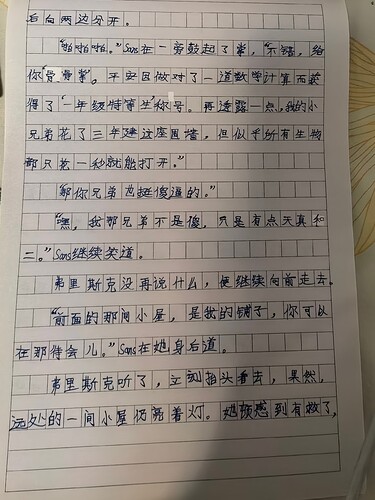 后向两边分开。
“啪啪啪。”Sans在一旁鼓起了掌，“不错，给
你“骨骨掌”。平安因做对了一道数学计算而获
得了‘一年级特等生’称号。再透露一点，我的小
兄弟花了三年建这座围墙，但似乎所有生物
都只花一秒就能打开。”
“那你兄弟也挺傻逼的。”
“嘿，我那兄弟不是傻，只是有点天真和
二。”Sans继续笑道。
弗里斯克没再说什么，便继续向前走去。
“前面的那间小屋，是我的铺了，你可以
在那待会儿。”Sans在她身后道。
弗里斯克听了，立刻抬头看去，果然，
远处的一间小屋仍亮着灯。她顿感到有救了，